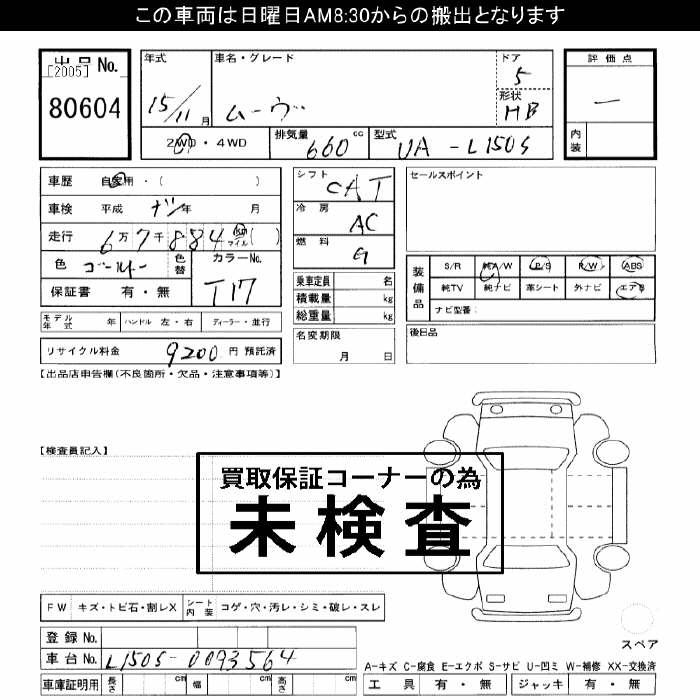 この車両は日曜日AM8:30からの搬出となります
出品 No.
[2005]
80604
年式
15/11 月
車名・グレード
ムーヴ
ドア
5
形状
HB
評価点
内装
2WD・4WD
排気量
660 cc
型式
UA-L150S
車歴 自家用・( )
車検 平成 ナシ 年 月
走行 6万7千884 km マイル ( )
色 ゴールド 色替
カラーNo.
T17
保証書 有・無
シフト
CAT
冷房
AC
燃料
G
セールスポイント
装備品
S/R 純A/W P/S P/W ABS
純TV 純ナビ 革シート 外ナビ エアB
ナビ型番:
乗車定員 名
積載量 kg
総重量 kg
モデル年式 年 ハンドル 左・右 ディーラー・並行
名変期限
月 日
後日品
リサイクル料金 9200 円 預託済
【出品店申告欄(不良箇所・欠品・注意事項等)】
【検査員記入】
買取保証コーナーの為
未検査
FW キズ・トビ石・割レX シート内装 コゲ・穴・汚レ・シミ・破レ・スレ
登録 No.
車台 No. L150S-0093564
車庫証明用 長さ cm 幅 cm 高さ cm
スペア
A-キズ C-腐食 E-エクボ S-サビ U-凹ミ W-補修 XX-交換済
工具 有・無 ジャッキ 有・無